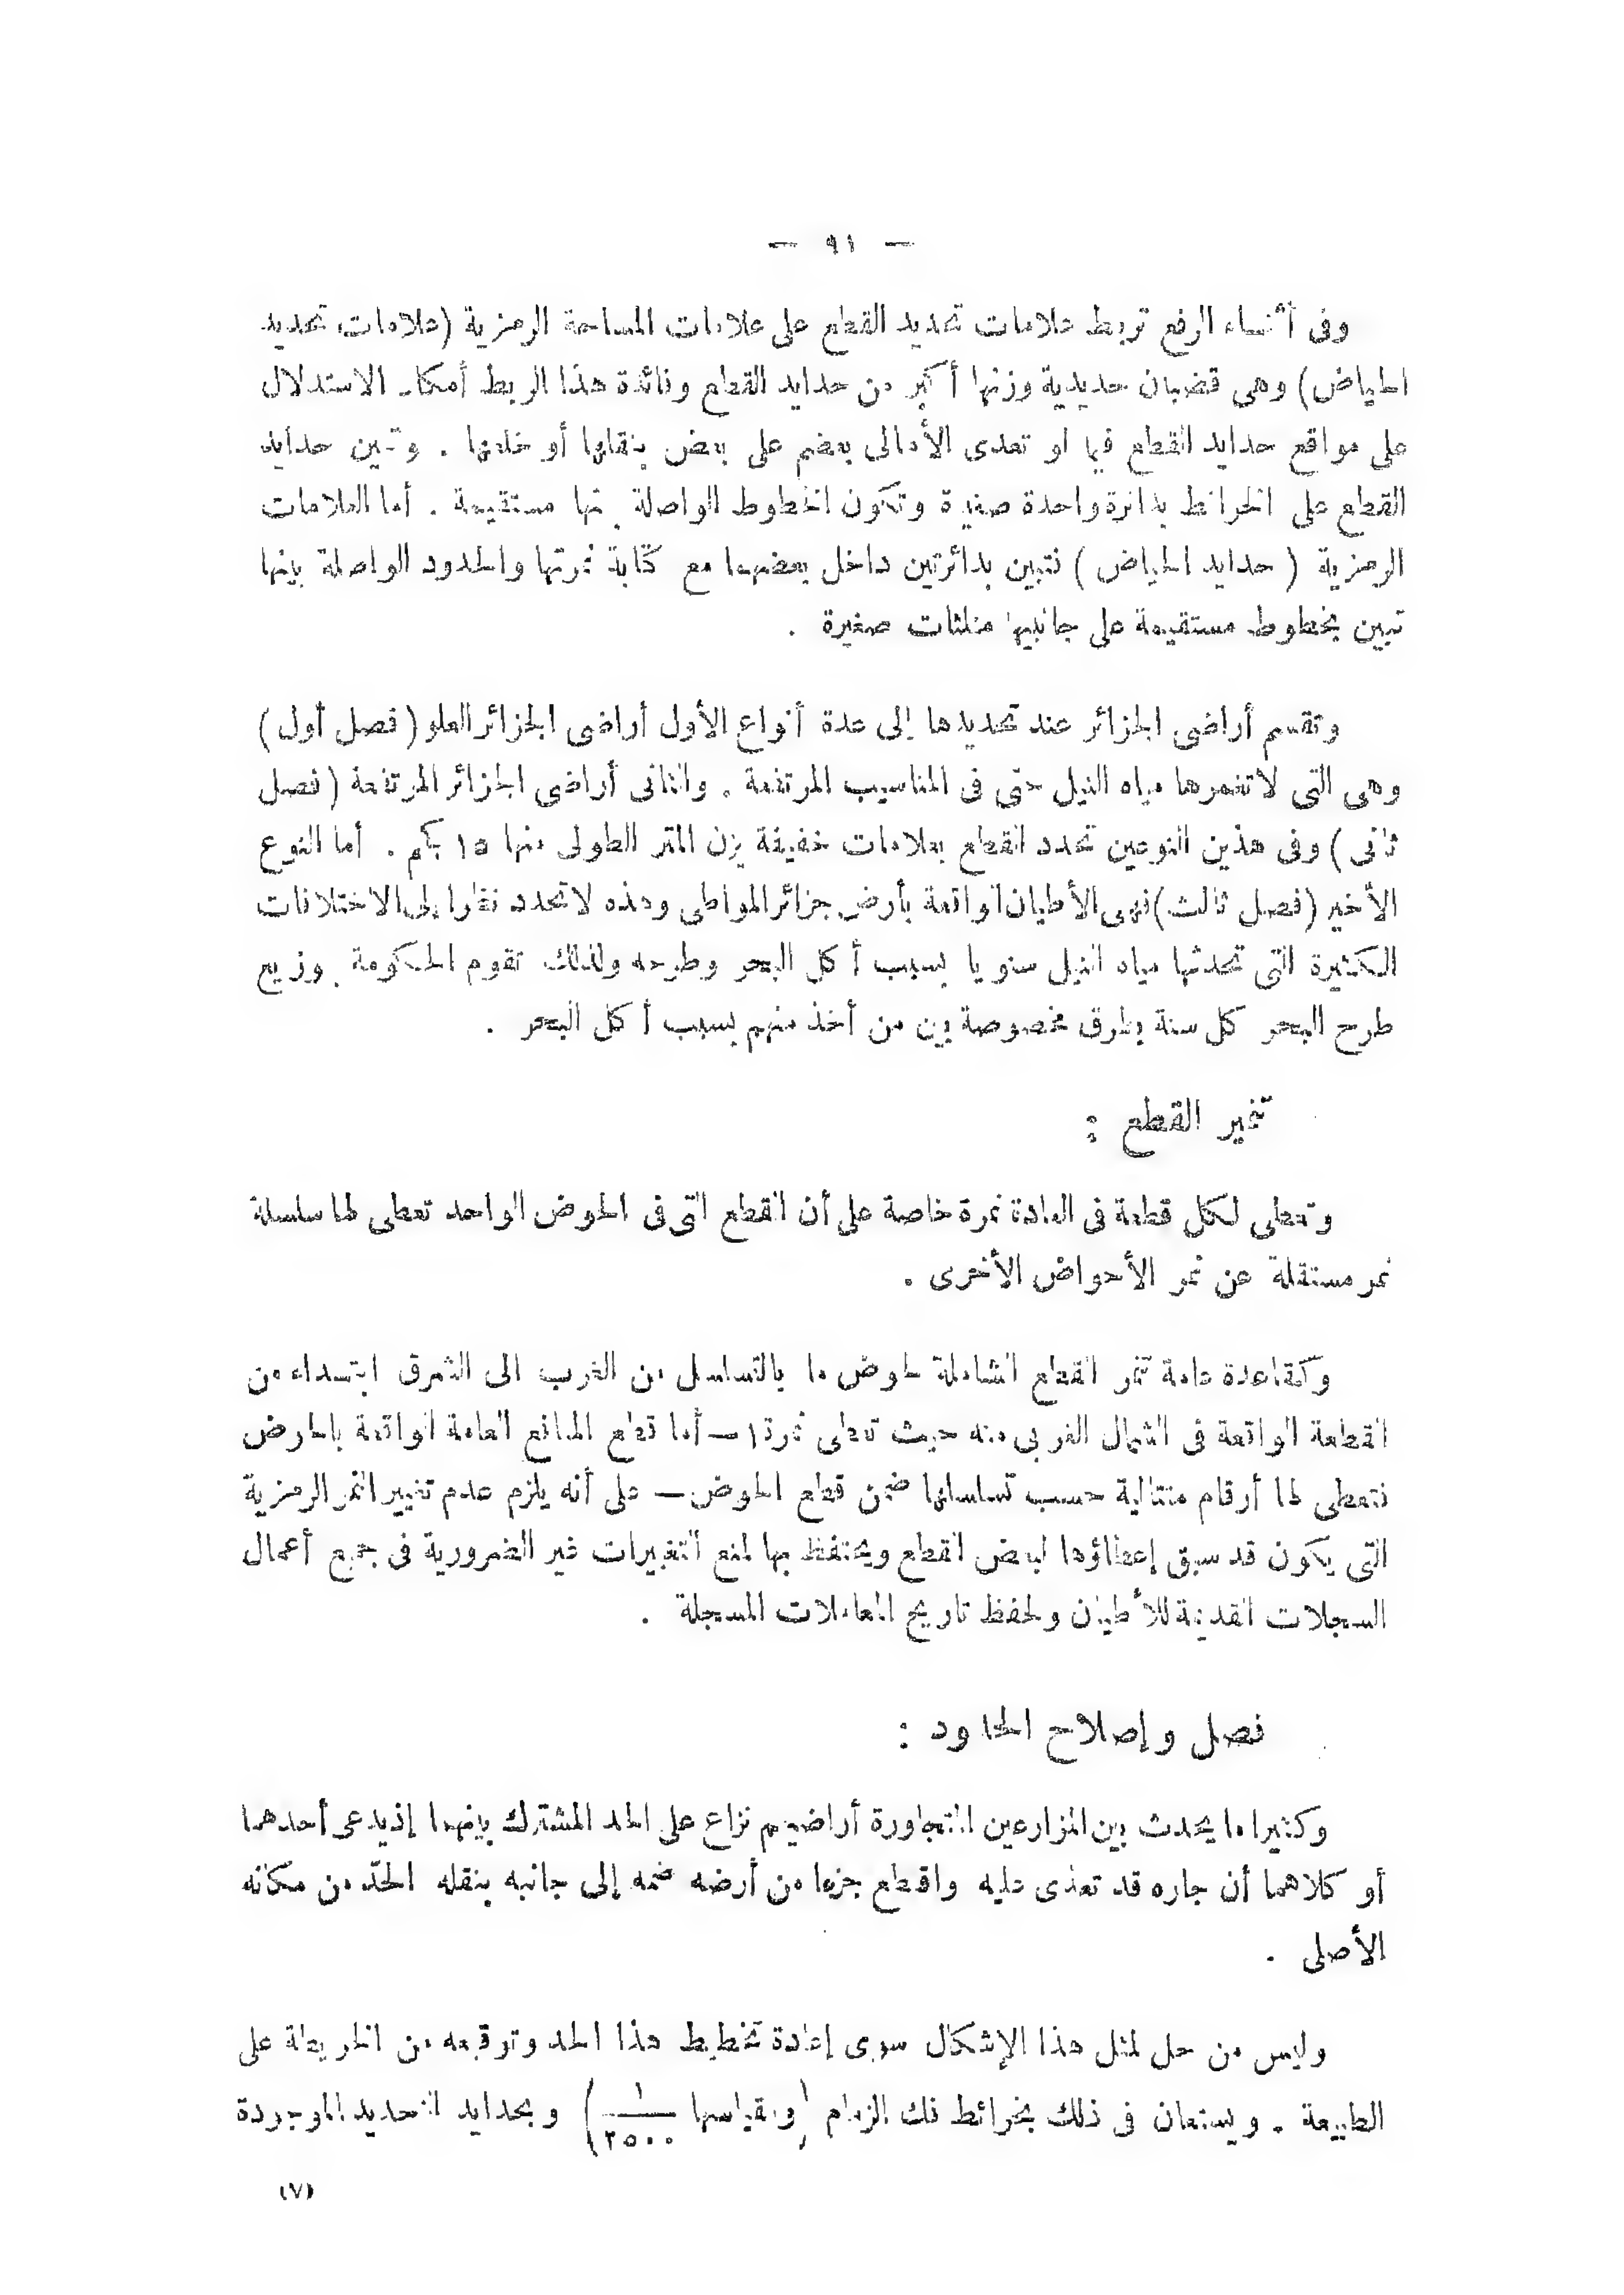 — ٩١ —
وفى أثناء الرفع تربط علامات تحديد القطع على علامات المساحة الرمزية (علامات تحديد
الحياض) وهى قضبان حديدية وزنها أكبر من حدايد القطع وفائدة هذا الربط أمكان الاستدلال
على مواقع حدايد القطع فيما لو تعدى الأهالى بعضهم على بعض بنقلها أو خلعها . وتبين حدايد
القطع على الخرائط بدائرة واحدة صغيرة وتكون الخطوط الواصلة بينها مستقيمة . أما العلامات
الرمزية ( حدايد الحياض ) فتبين بدائرتين داخل بعضهما مع كتابة نمرتها والحدود الواصلة بينها
تبين بخطوط مستقيمة على جانبيها مثلثات صغيرة .
وتقسم أراضى الجزائر عند تحديدها إلى عدة أنواع الأول أراضى الجزائر العلو ( فصل أول )
وهى التى لا تغمرها مياه النيل حتى فى المناسيب المرتفعة . والثانى أراضى الجزائر المرتفعة ( فصل
ثانى ) وفى هذين النوعين تحدد القطع بعلامات خفيفة يزن المتر الطولى منها ١٥ كجم . أما النوع
الأخير (فصل ثالث) فهى الأطيان الواقعة بأرض جزائر المواطى وهذه لا تحدد نظرا إلى الاختلافات
الكثيرة التى تحدثها مياه النيل سنويا بسبب أكل البحر وطرحه ولذلك تقوم الحكومة بوزيع
طرح البحر كل سنة بطرق مخصوصة بين من أخذ منهم بسبب أكل البحر .
تنمير القطع :
وتعطى لكل قطعة فى العادة نمرة خاصة على أن القطع التى فى الحوض الواحد تعطى لها سلسلة
نمر مستقلة عن نمر الأحواض الأخرى .
وكقاعدة عامة تنمر القطع الشاملة لحوض ما بالتسلسل من الغرب الى الشرق ابتداء من
القطعة الواقعة فى الشمال الغربى منه حيث تعطى نمرة ١ — أما قطع المنافع العامة الواقعة بالحوض
فتعطى لها أرقام متتالية حسب تسلسلها ضمن قطع الحوض — على أنه يلزم عدم تغيير النمر الرمزية
التى يكون قد سبق إعطاؤها لبعض القطع ويحتفظ بها لمنع التغييرات غير الضرورية فى جميع أعمال
السجلات القديمة للأطيان ولحفظ تاريخ المعاملات المسجلة .
فصل وإصلاح الحدود :
وكثيرا ما يحدث بين المزارعين المتجاورة أراضيهم نزاع على الحد المشترك بينهما إذ يدعى أحدهما
أو كلاهما أن جاره قد تعدى عليه واقطع جزءا من أرضه ضمه إلى جانبه بنقله الحدّ من مكانه
الأصلى .
وليس من حل لمثل هذا الإشكال سوى إعادة تخطيط هذا الحد وتوقيعه من الخريطة على
الطبيعة . ويستعان فى ذلك بخرائط فك الزمام ( ومقياسها ١/٢٥٠٠ ) وبحدايد التحديد الموجودة
(٧)